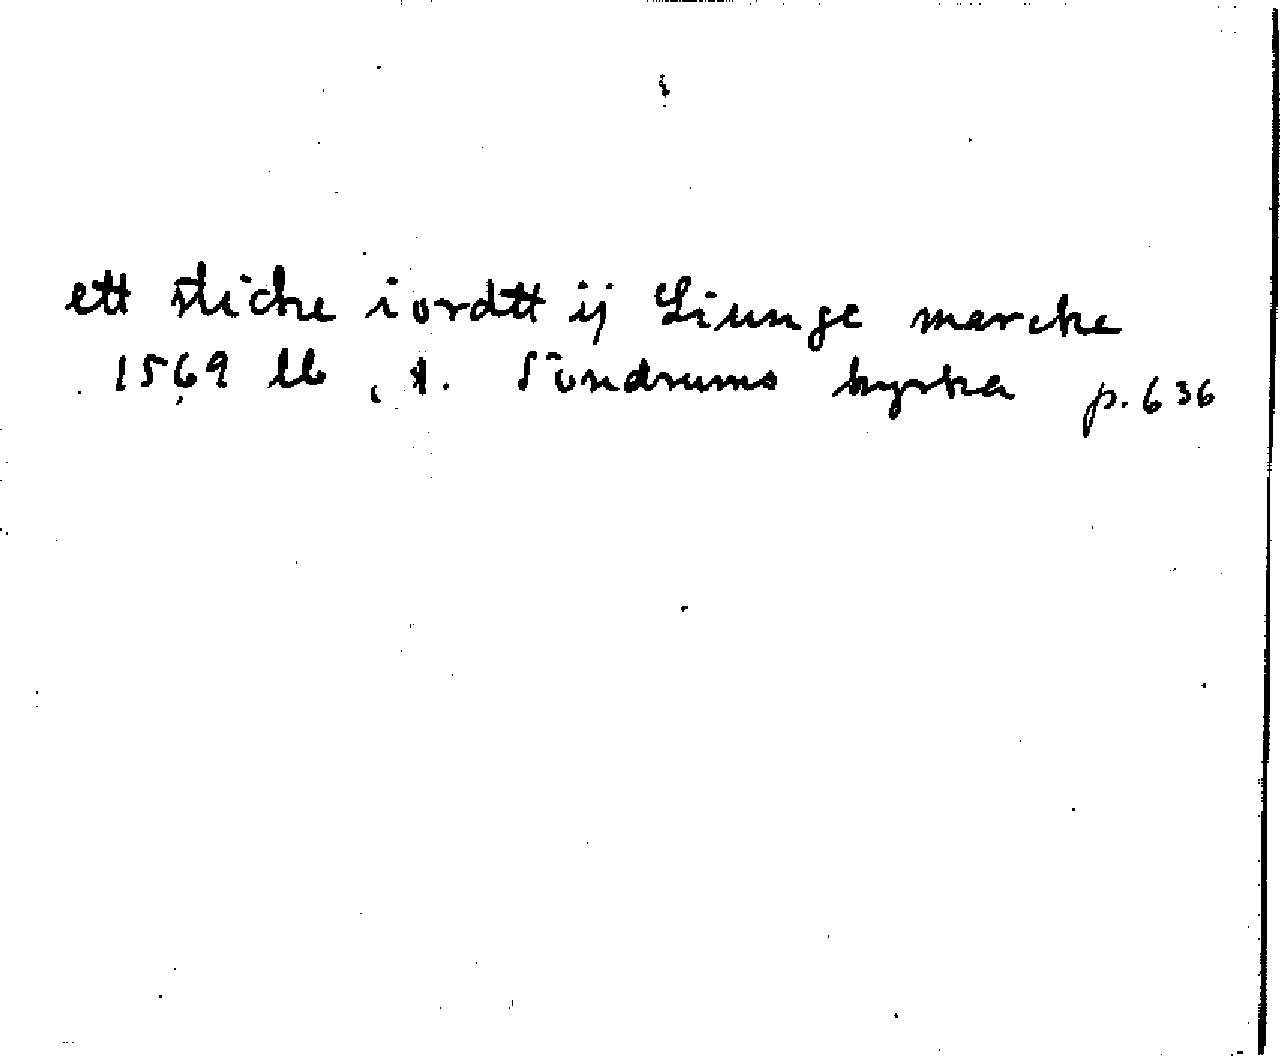 ett sticke iordtt ij Liunge marcke
1569 lb, t. Söndrums kyrka p. 636